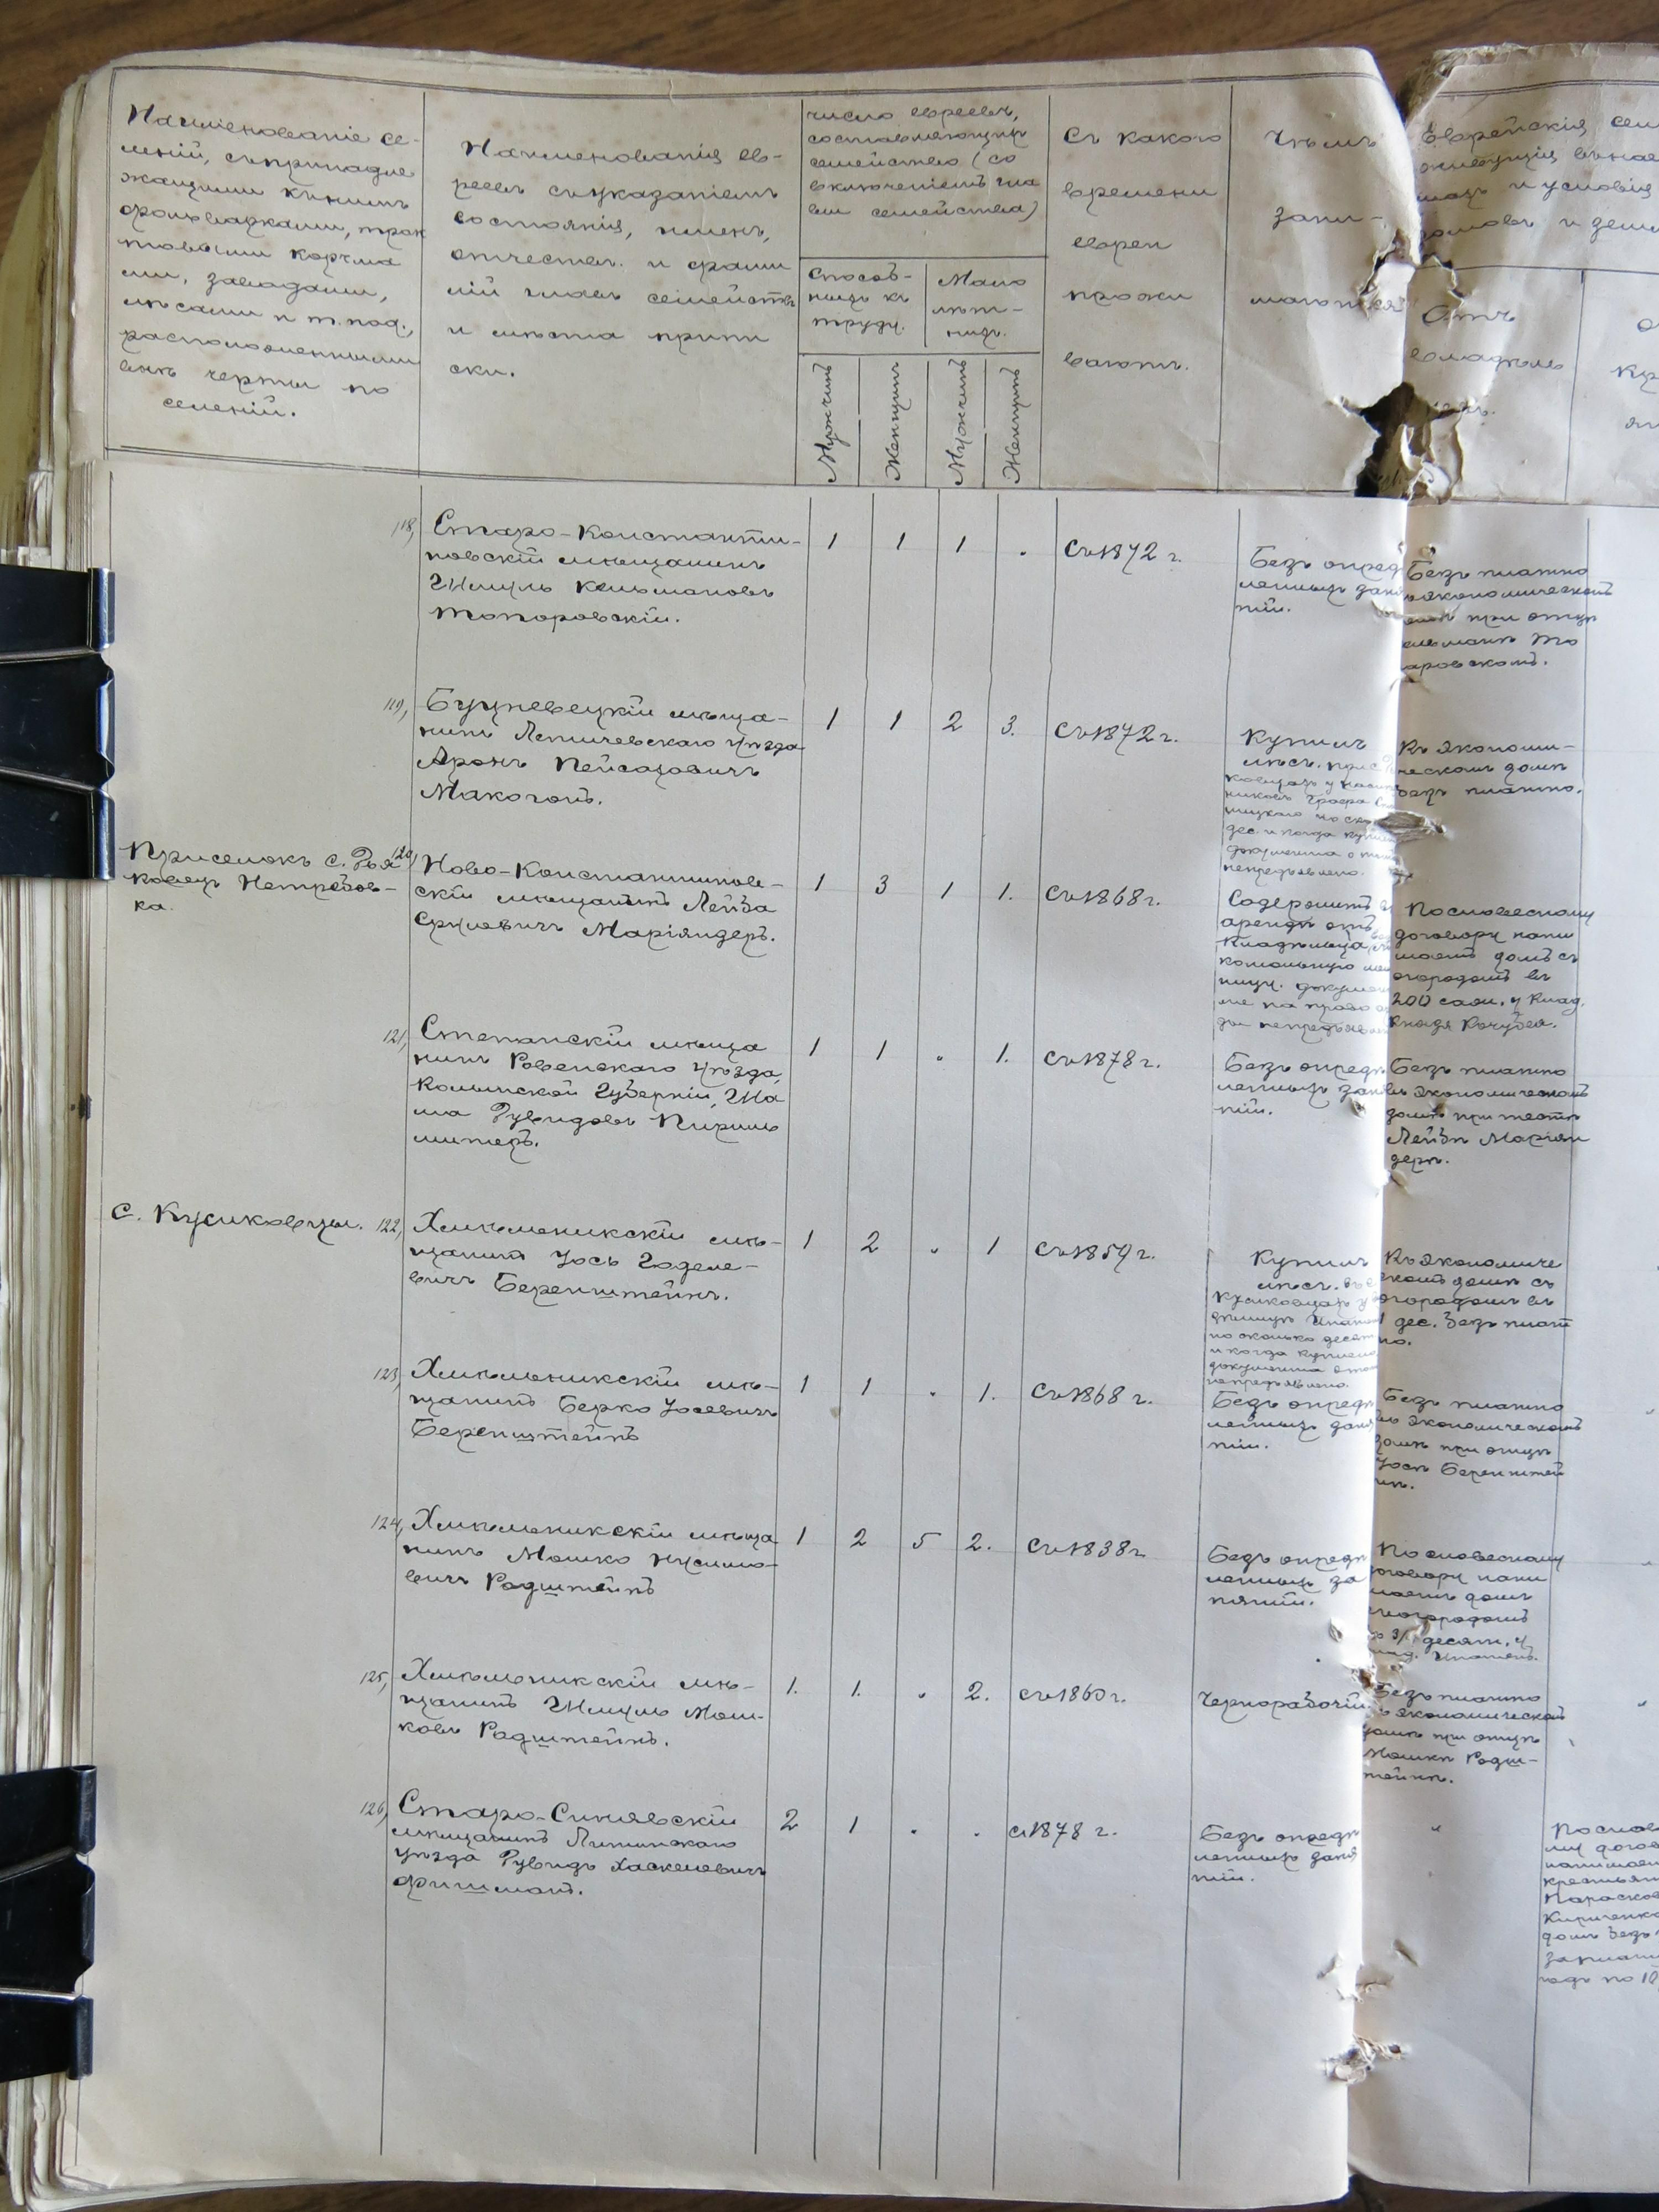 Наименованіе се-
леній, съ принадле
жащими къ нимъ
фольварками, трак
товыми корчма
ми, заводами,
лѣсами и т. под.,
расположенными
внѣ черты по
селеній.
Наименованія ев-
реевъ съ указаніемъ
состоянія, именъ,
отчествъ и фами
лій главъ семействъ
и мѣста припи
ски.
Число евреевъ,
составляющихъ
семейство (со
включеніемъ гла
вы семейства)
Способ-
ныхъ къ
труду.
Мало
лѣт-
нихъ.
Мужчинъ
Женщинъ
Мужчинъ
Женщинъ
Съ какого
времени
евреи
прожи
ваютъ.
Чѣмъ
зани-
маются
Еврейскія сем
живущія въ на
и условія
домовъ и земл
Отъ
владѣль
118, Старо-Константи-
новскій мѣщанинъ
Шмуль Кельмановъ
Топоровскій.
1 1 1 . Съ 1872 г.
Безъ опред
ленныхъ заня
тій.
Безъ платно
экономическомъ
при отцѣ
Кельманѣ То
поровскомъ.
119, Буцневецкій мѣща-
нинъ Летичевскаго уѣзда
Аронъ Пейсаховичъ
Макогонъ.
1 1 2 3. Съ 1872 г.
Купилъ
лѣсъ. при с. Р
ковцахъ у наслѣд
никовъ Графа
но ско
дес. и когда купле
документа о томъ
непредъявлено.
Въ экономи-
ческомъ домѣ
безъ платно.
Приселокъ с. Рья
ковецъ Нетребов-
ка.
120, Ново-Константинов-
скій мѣщанинъ Лейба
Сруловичъ Маріяндеръ.
1 3 1 1. Съ 1868 г.
Содержитъ въ
арендѣ отъ
Владѣльца
ницу. докумен
та на право а
ды непредъявлен
По словесному
договору нани
маетъ домъ съ
огородомъ въ
200 саж. у Влад.
Князя Кочубея.
121, Степанскій мѣща
нинъ Ровенскаго уѣзда,
Волынской Губерніи, Ша
ма Рувидовъ Пириль
митеръ.
1 1 . 1. Съ 1878 г.
Безъ опредѣ
ленныхъ заня
тій.
Безъ платно
въ экономическомъ
домѣ при тестѣ
Лейбѣ Маріян
дерѣ.
С. Кусиковцы.
122, Хмѣльникскій мѣ-
щанинъ Іось Годеле-
вичъ Беренштейнъ.
1 2 . 1 Съ 1859 г.
Купилъ
лѣсъ. въ с.
Кусиковцахъ у
но сколько десят
и когда куплено
документа о томъ
непредъявлено.
Въ экономиче
скомъ домѣ съ
огородомъ въ
1 дес. безъ плат
но.
123, Хмѣльникскій мѣ-
щанинъ Берко Іосевичъ
Беренштейнъ
1 1 . 1. Съ 1868 г.
Безъ опредѣ
ленныхъ заня
тій.
Безъ платно
въ экономическомъ
домѣ при отцѣ
Іосѣ Беренштей
нѣ.
124, Хмѣльникскій мѣща
нинъ Мошко Нусимо-
вичъ Радштейнъ
1 2 5 2. Съ 1838 г
Безъ опредѣ
ленныхъ за
нятій.
По словесному
договору нани
маетъ домъ
съ огородомъ
десят. у
125, Хмѣльникскій мѣ-
щанинъ Шмуль Мош-
ковъ Радштейнъ.
1. 1. . 2. Съ 1860 г.
Чернорабочій
Безъ платно
въ экономическомъ
домѣ при отцѣ
Мошкѣ Радш-
тейнѣ.
126, Старо-Синявскій
мѣщанинъ Литинскаго
уѣзда Рувидъ Хаскелевичъ
Фишманъ.
2 1 . . Съ 1878 г.
Безъ опредѣ
ленныхъ заня
тій.
"
По слове
му догов
нанимает
крестьян
Парасков
Кириченко
домъ безъ
годъ по 10